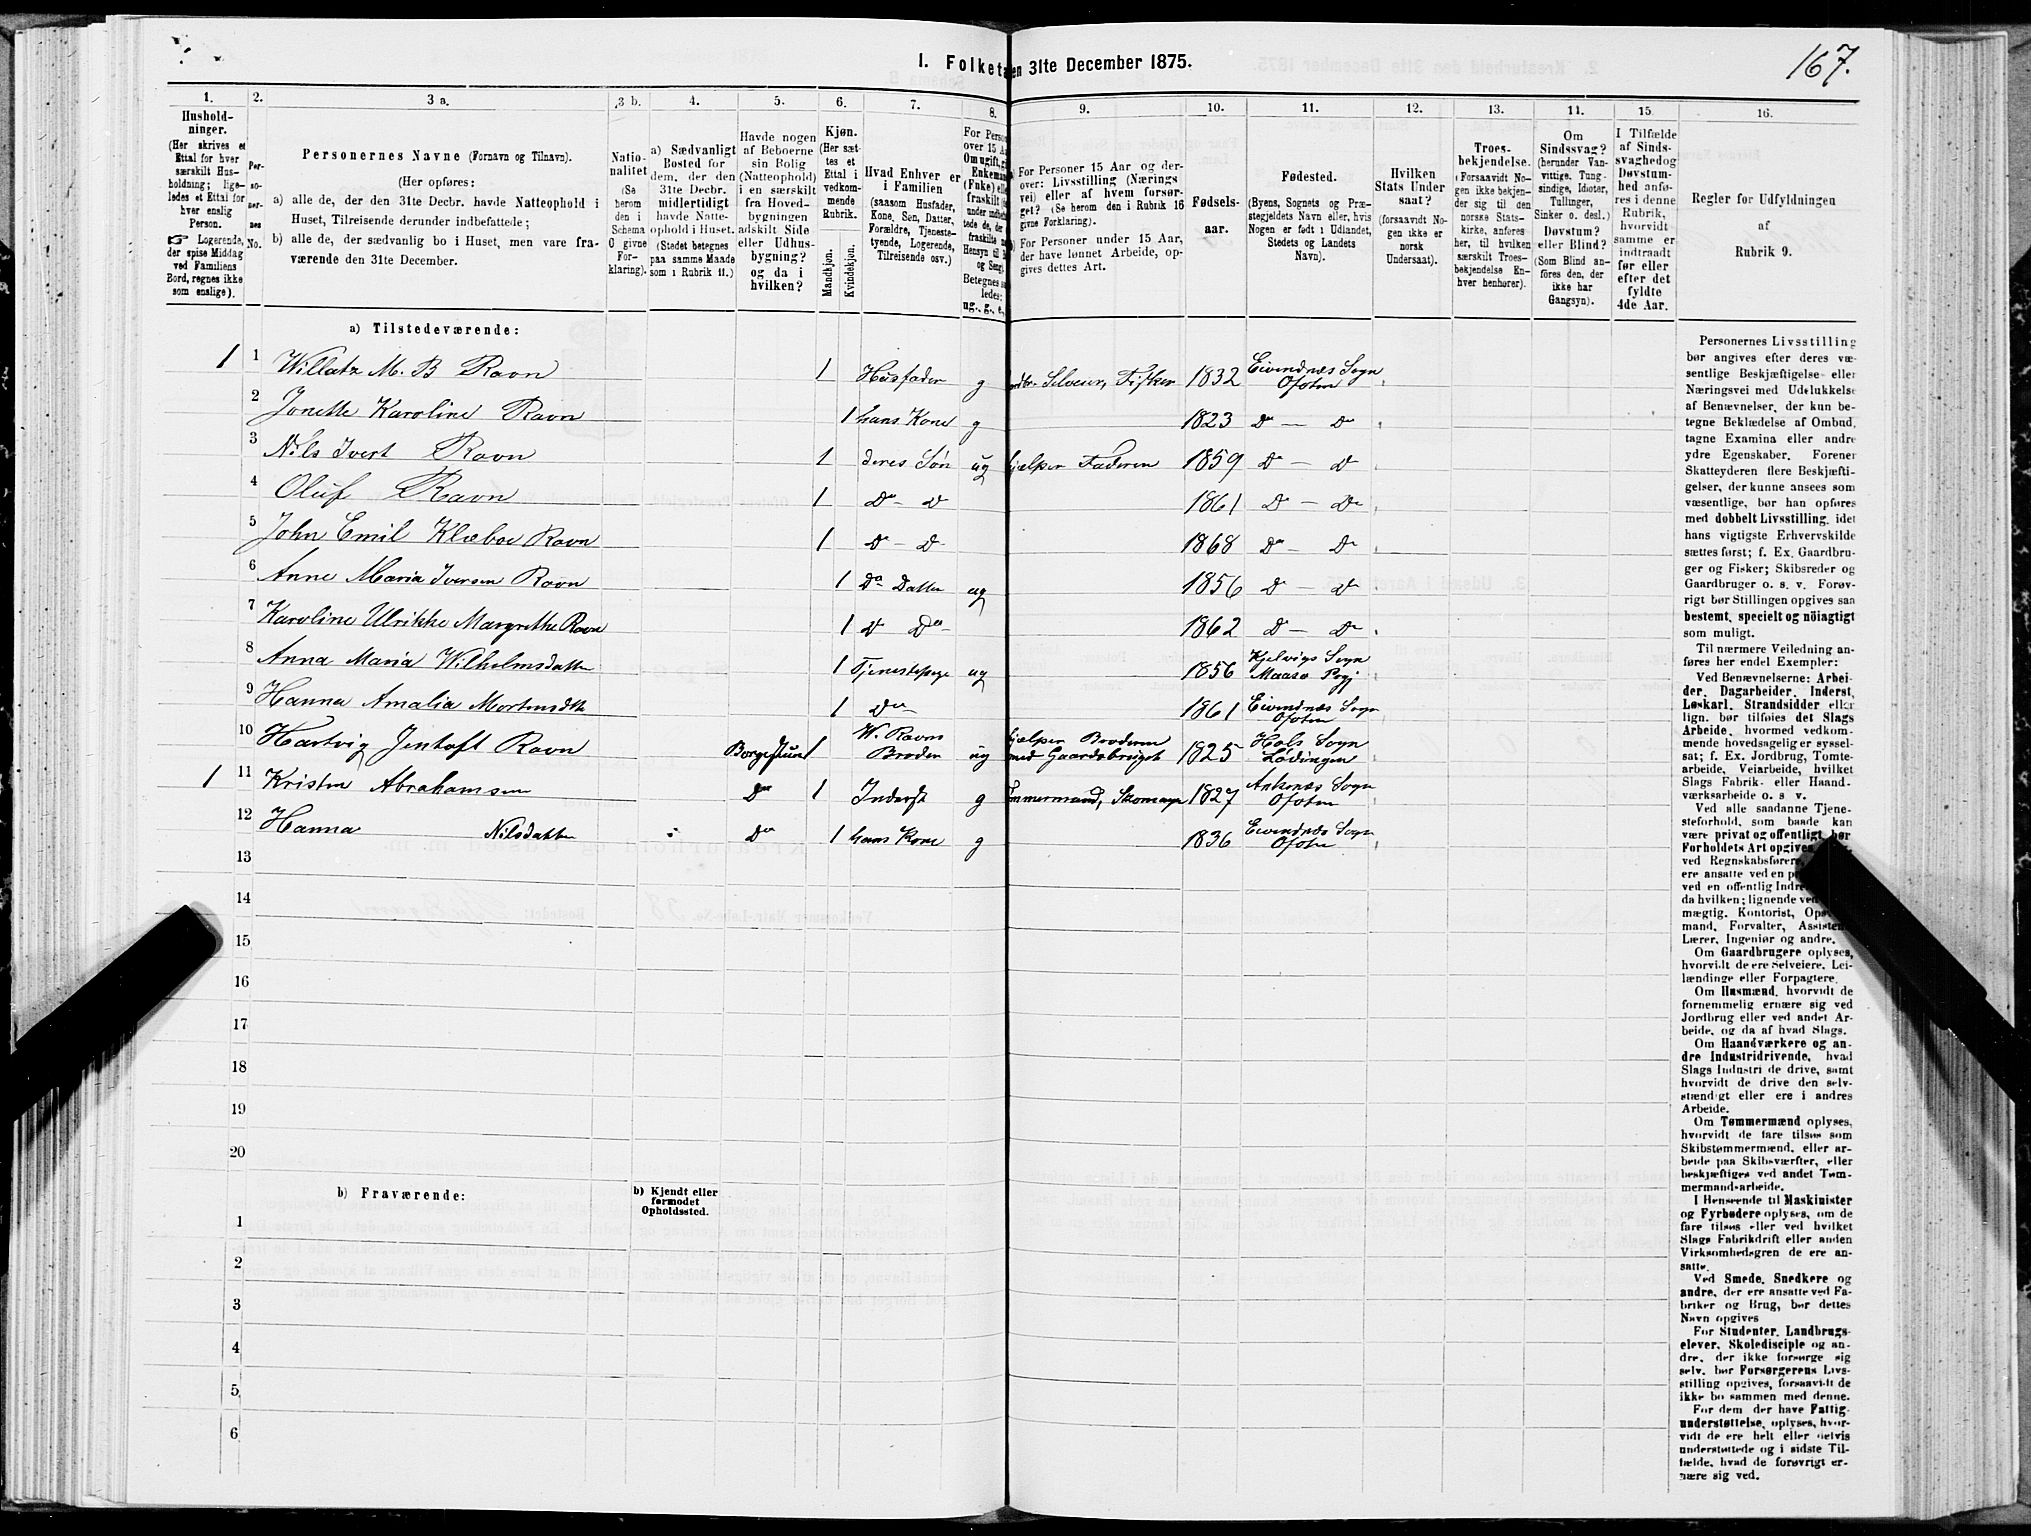 1. Folketæ
en 31te December 1875.
167.
1.
2.
3 a.
3 b.
4.
5.
6.
7.
8.
9.
10.
11.
12.
13.
11.
15.
16.
Hushold-
ninger.
(Her skrives et
Ettal for hver
særskilt Hus-
holdning; lige-
ledes et Ettal for
hver enslig
Person.
☞ Logerende,
der spise Middag
ved Familiens
Bord, regnes ikke
som enslige).
Per-
so-
ner-
nes
No.
Personernes Navne (Fornavn og Tilnavn).
(Her opføres:
a) alle de, der den 31te Decbr. havde Natteophold i
Huset, Tilreisende derunder indbefattede;
b) alle de, der sædvanlig bo i Huset, men vare fra-
værende den 31te December.
Natio-
nalitet
(Se
herom
den i
Schema
C givne
For-
klaring).
a) Sædvanligt
Bosted for
dem, der den
31te Decbr.
midlertidigt
havde Natte-
ophold i Huset.
(Stedet betegnes
paa samme Maade
som i Rubrik 11.)
Havde nogen
af Beboerne
sin Bolig
(Natteophold)
i en særskilt
fra Hoved-
bygningen
adskilt Side
eller Udhus-
bygning?
og da i
hvilken?
Kjøn.
(Her sæt-
tes et
Ettal i
vedkom-
mende
Rubrik.
Mandkjøn.
Kvindekjøn.
Hvad Enhver er
i Familien
(saasom Husfader,
Kone, Søn, Datter,
Forældre, Tjeneste-
tyende, Logerende,
Tilreisende osv.)
For Person
over 15 Aa
Om ugift, gi
Enkeman
(Enke) elle
fraskilt
under indbefat
tede de,
fraskilte
Hensyn til
og Seng
Betegnes s
ledes:
ug., g., e.,
For Personer 15 Aar og der-
over: Livsstilling (Nærings
vei) eller af hvem forsør-
get? (Se herom den i Rubrik 16
givne Forklaring).
For Personer under 15 Aar,
der have lønnet Arbeide, op-
gives dettes Art.
Fødsels-
aar.
Fødested.
(Byens, Sognets og Præ-
stegjeldets Navn eller, hvis
Nogen er født i Udlandet,
Stedets og Landets
Navn).
Hvilken
Stats Under
saat?
(forsaavidt No-
gen ikke er
norsk
Undersaat).
Troes-
bekjendelse.
(Forsaavidt No-
gen ikke bekjen-
der sig til den
norske Stats-
kirke, anføres
her, til hvilken
særskilt Troes-
bekjendelse En-
hver henhører).
Om
Sindssvag?
(herunder Van-
vittige, Tung-
sindige, Idioter,
Tullinger,
Sinker o. desl.)
Døvstum?
eller Blind?
(Som Blind an-
føres den, der
ikke har
Gangsyn).
I Tilfælde
af Sinds-
svaghed og
Døvstum-
hed anfø-
res i denne
Rubrik,
hvorvidt
samme er
indtraadt
før eller
efter det
fyldte
4de Aar.
Regler for Udfyldningen
af
Rubrik 9.
a) Tilstedeværende:
1 1 Willatz M. B Ravn 1 Husfader g Selveier, Fisker 1832 Eivindnæs Sogn Ofoten
2 Jonette Karoline Ravn 1 hans Kone g 1823 Do — Do
3 Nils Ivert Ravn 1 deres Søn ug hjælper Faderen 1859 D — D
4 Oluf Ravn 1 Do — D 1861 D — Do
5 John Emil Klæboe Ravn 1 D — D 1868 Do — Do
6 Anne Maria Iversen Ravn 1 Do Datter ug 1856 D — D
7 Karoline Ulrikke Margrethe Ravn 1 D Do 1862 D — Do
8 Anna Maria Wilhelmsdatter 1 Tjenestepige ug 1856 Kjelvigs Sogn Maasø Pgj
9 Hanna Amalia Mortensdtr 1 Do 1861 Eivindnæs Sogn Ofoten
10 Hartvig Jentoft Ravn Borgestuen 1 W. Ravns Broder ug hjælper Broderen med Gaardsbruget 1825 Hols Sogn Lødingen
1 11 Kristen Abrahamsen Do 1 Inderst g Tømmermand, Skomager 1827 Ankenæs Sogn Ofoten
12 Hanna Nilsdatter Do 1 hans Kone g 1836 Eivindnæs Sogn Ofoten
13
14
15
16
17
18
19
20
b) Fraværende:
b) Kjendt eller
formodet
Opholdssted.
1
2
3
4
5
6
Personernes Livsstilling
bør angives efter deres væ-
sentlige Beskjæftigelse eller
Næringsvei med Udelukkelse
af Benævnelser, der kun be-
tegne Beklædelse af Ombud,
tagne Examina eller andre
ydre Egenskaber. Forener
Skatteyderen flere Beskjæfti-
gelser, der kunne ansees som
væsentlige, bør han opføres
med dobbelt Livsstilling, idet
hans vigtigste Erhvervskilde
sættes først; f. Ex. Gaardbru-
ger og Fisker; Skibsreder og
Gaardbruger o. s. v. Forøv-
rigt bør Stillingen opgives saa
bestemt, specielt og nöiagtigt
som muligt.
Til nærmere Veiledning an-
føres her endel Exempler:
Ved Benævnelserne: Arbei-
der, Dagarbeider, Inderst,
Løskarl, Strandsidder eller
lign. bør tilføies det Slags
Arbeide, hvormed vedkom-
mende hovedsagelig er syssel-
sat; f. Ex. Jordbrug, Tomte-
arbeide, Veiarbeide, hvilket
Slags Fabrik- eller Haand-
værksarbeide o. s v.
Ved alle saadanne Tjene-
steforhold, som baade kan
være privat og offentligt, bør
Forholdets Art opgives,
ved Regnskabsførere,
ere ansatte ved en
ved en offentlig Indre
da hvilken; lignende ved
mægtig, Kontorist, Ops
mand, Forvalter, Assistent,
Lærer, Ingeniør og andre.
Om Gaardbrugere oplyses,
hvorvidt de ere Selveiere, Lei-
lændinge eller Forpagtere.
Om Husmænd, hvorvidt de
fornemmelig ernære sig ved
Jordbrug eller ved andet Ar-
beide, og da af hvad Slags.
Om Haandværkere og an-
dre Industridrivende, hvad
Slags Industri de drive, samt
hvorvidt de drive den selv-
stændigt eller ere i andres
Arbeide.
Om Tømmermænd oplyses,
hvorvidt de fare tilsøs som
Skibstømmermænd, eller ar-
beide paa Skibsværfter, eller
beskjæftiges ved andet Tøm-
mermandsarbeide.
I Henseende til Maskinister
og Fyrbødere oplyses, om de
fare tilsøs eller ved hvilket
Slags Fabrikdrift eller anden
Virksomhedsgren de ere an-
satte.
Ved Smede, Snedkere og
andre, der ere ansatte ved Fa-
briker og Brug, bør dettes
Navn opgives
For Studenter, Landbrugs-
elever, Skoledisciple og an-
dre, der ikke forsørge sig
selv, bør Forsørgerens Livs-
stilling opgives, forsaavidt de
ikke bo sammen med denne.
For dem, der have Fattig-
understøttelse, oplyses, hvor-
vidt de ere helt eller delvis
understøttede og i sidste Til-
fælde, hvad de forøvrigt er-
nære sig ved.